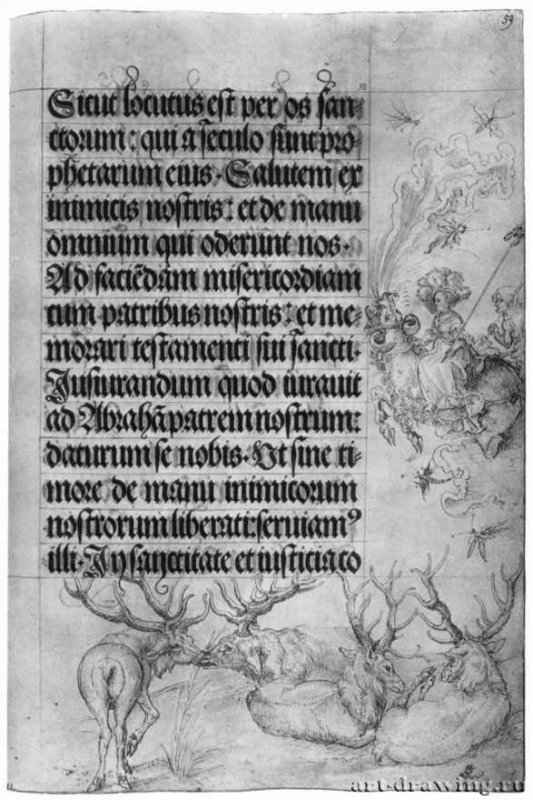 59
Sicut locutus est per os san-
ctorum: qui a seculo sunt pro-
phetarum eius. Salutem ex
inimicis nostris: et de manu
omnium qui oderunt nos.
Ad faciēdam misericordiam
cum patribus nostris: et me-
morari testamenti sui sancti.
Jusiurandum quod iurauit
ad Abrahā patrem nostrum:
daturum se nobis. Vt sine ti-
more de manu inimicorum
nostrorum liberati: seruiamꝰ
illi. In sanctitate et iusticia co
art-drawing.ru